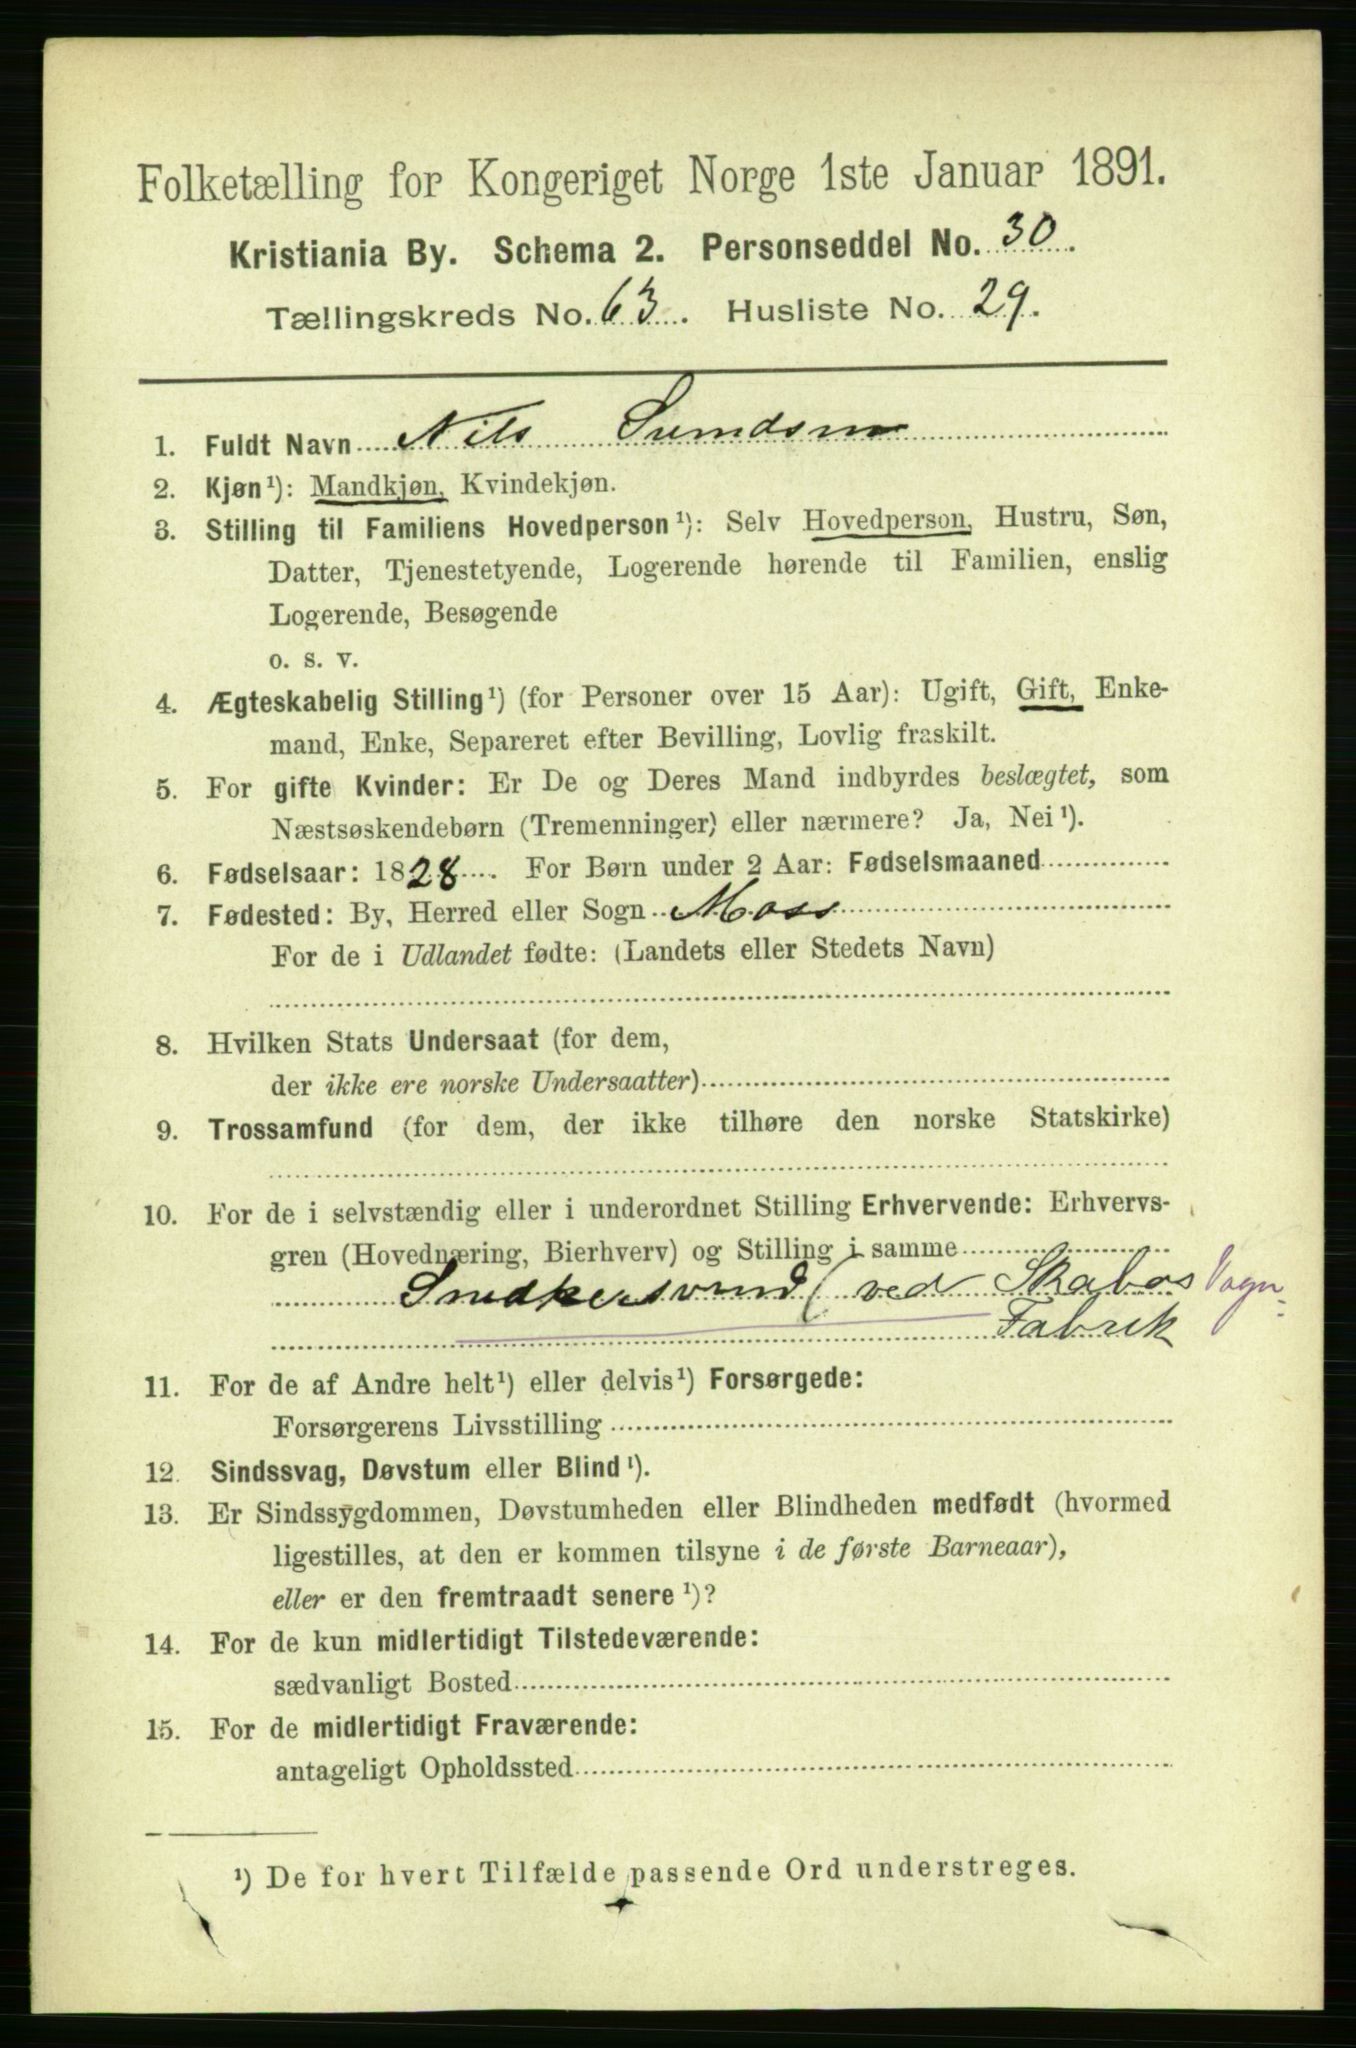 Folketælling for Kongeriget Norge 1ste Januar 1891.
Kristiania By. Schema 2. Personseddel No. 30.
Tællingskreds No. 63. Husliste No. 29.
1. Fuldt Navn Nils Svendsen
2. Kjøn¹): Mandkjøn, Kvindekjøn.
3. Stilling til Familiens Hovedperson¹): Selv Hovedperson, Hustru, Søn,
Datter, Tjenestetyende, Logerende hørende til Familien, enslig
Logerende, Besøgende
o. s. v.
4. Ægteskabelig Stilling¹) (for Personer over 15 Aar): Ugift, Gift, Enke-
mand, Enke, Separeret efter Bevilling, Lovlig fraskilt.
5. For gifte Kvinder: Er De og Deres Mand indbyrdes beslægtet, som
Næstsøskendebørn (Tremenninger) eller nærmere? Ja, Nei¹).
6. Fødselsaar: 1828. For Børn under 2 Aar: Fødselsmaaned
7. Fødested: By, Herred eller Sogn Moss
For de i Udlandet fødte: (Landets eller Stedets Navn)
8. Hvilken Stats Undersaat (for dem,
der ikke ere norske Undersaatter)
9. Trossamfund (for dem, der ikke tilhøre den norske Statskirke)
10. For de i selvstændig eller i underordnet Stilling Erhvervende: Erhvervs-
gren (Hovednæring, Bierhverv) og Stilling i samme
Snedkersvend (ved Skabos Vogn-
Fabrik
11. For de af Andre helt¹) eller delvis¹) Forsørgede:
Forsørgerens Livsstilling
12. Sindssvag, Døvstum eller Blind¹).
13. Er Sindssygdommen, Døvstumheden eller Blindheden medfødt (hvormed
ligestilles, at den er kommen tilsyne i de første Barneaar),
eller er den fremtraadt senere¹)?
14. For de kun midlertidigt Tilstedeværende:
sædvanligt Bosted
15. For de midlertidigt Fraværende:
antageligt Opholdssted
¹) De for hvert Tilfælde passende Ord understreges.